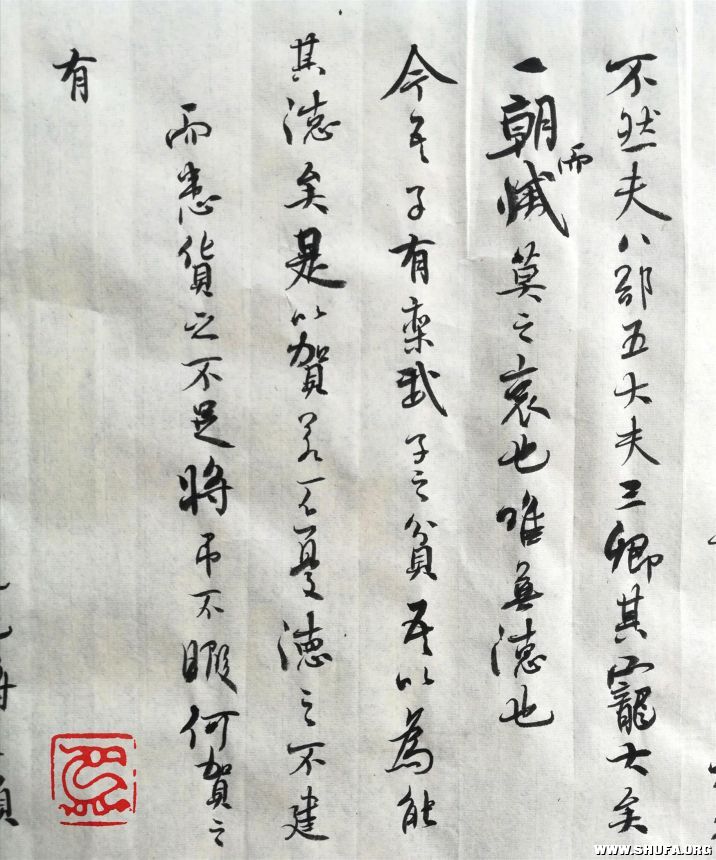 不然夫八郤五大夫三卿其寵大矣
一朝而滅莫之哀也唯無德也
今吾子有欒武子之貧吾以為能
其德矣是以賀若不憂德之不建
而患貨之不足將吊不暇何賀之
有
WWW.SHUFA.ORG